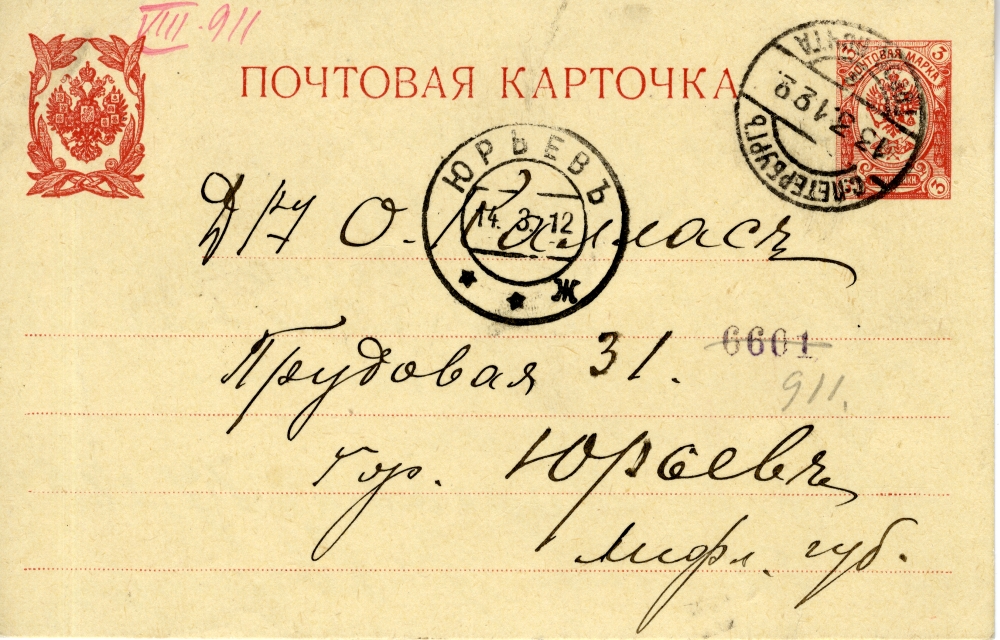 VIII-911
ПОЧТОВАЯ КАРТОЧКА
3 ПОЧТОВАЯ МАРКА 3
3
С.ПЕТЕРБУРГЪ
13 3 12
ЮРЬЕВЪ
14. 3. 12
Ж
Д-ру О. Калласъ
Прудовая 31.
6601
911.
гор. Юрьевъ
Лифл. губ.